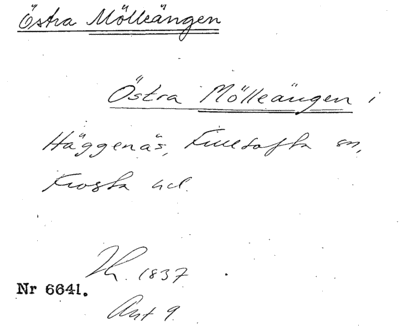 Östra Mölleängen
Östra Mölleängen i
Häggenäs, Fulltofta sn,
Frosta hd.
1837
Nr 6641.
Akt 9.